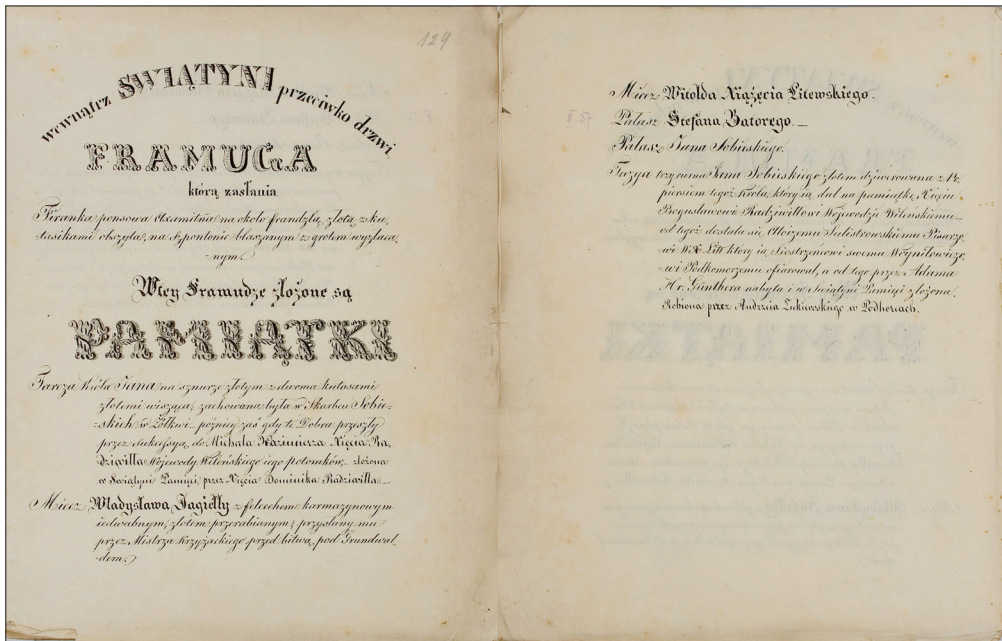 129
wewnątrz SWIĄTYNI przeciwko drzwi
FRAMUGA
którą zasłania
Firanka ponsowa Axamitna na około frandzlą złotą z ku-
tasikami obszyta, na Szpontonie blaszanym z grotem wyzłaca-
-nym.
Wtey Framudze złożone są
PAMIĄTKI
Tarcza Króla Jana na sznurze złotym z dwoma kutasami
złotemi wisząca; zachowana była w Skarbcu Sobie-
-skich w Żółkwi _ pózniey zaś gdy te Dobra przeszły
przez Sukcessyą, do Michała Kazimierza Xięcia Ra-
dziwiłła Wojewody Wileńskiego iego potomków,_ złożona
w Swiątyni Pamięci przez Xięcia Dominika Radziwiłła._
Miecz Władysława Jagiełły z felcechem karmazynowym
iedwabnym, złotem przerabianym; przysłany mu
przez Mistrza Krzyżackiego przed bitwą pod Grunwal-
dem.
Miecz Witolda Xiążęcia Litewskiego.
Pałasz Stefana Batorego._
II.57
Pałasz Jana Sobieskiego.
Fuzya trzyrurna Jana Sobieskiego złotem dziwerowana z Po-
piersiem tegoż Króla, który ią dał na pamiątkę Xięciu
Bogusławowi Radziwiłłowi Wojewodzie Wileńskiemu_
od tegoż dostała się Aloizemu Sulistrowskiemu Pisarzo-
wi W. X. Litt: który ią Siostrzeńcowi swemu Woyniłowiczo-
-wi Podkomorzemu ofiarował, a od tego przez Adama
Hr. Günthera nabyta i w Swiątyni Pamięci złożona.
Robiona przez Andrzeia Żukowskiego w Podhorcach.